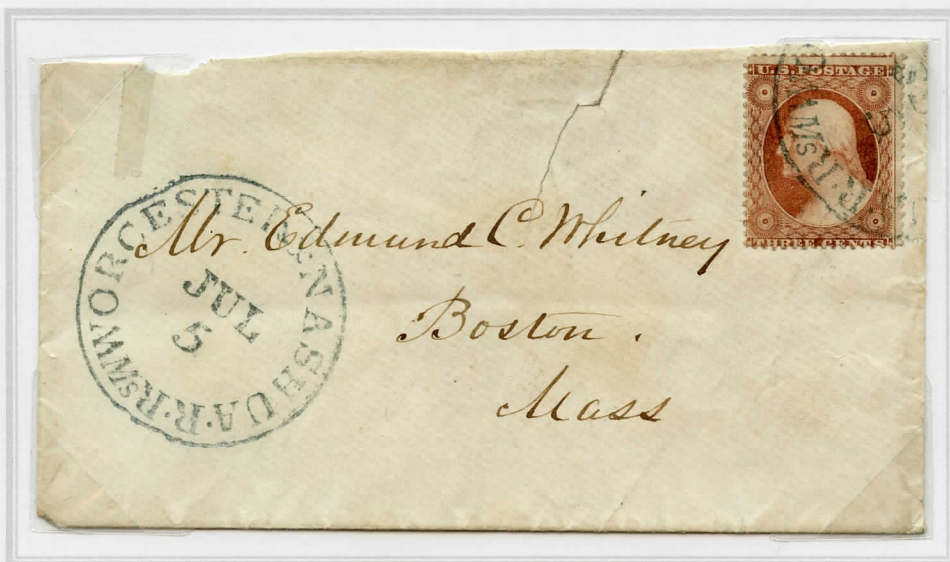 U.S. POSTAGE
THREE CENTS
WORCESTER & NASHUA·R·R
JUL
5
Mr. Edmund C. Whitney
Boston.
Mass